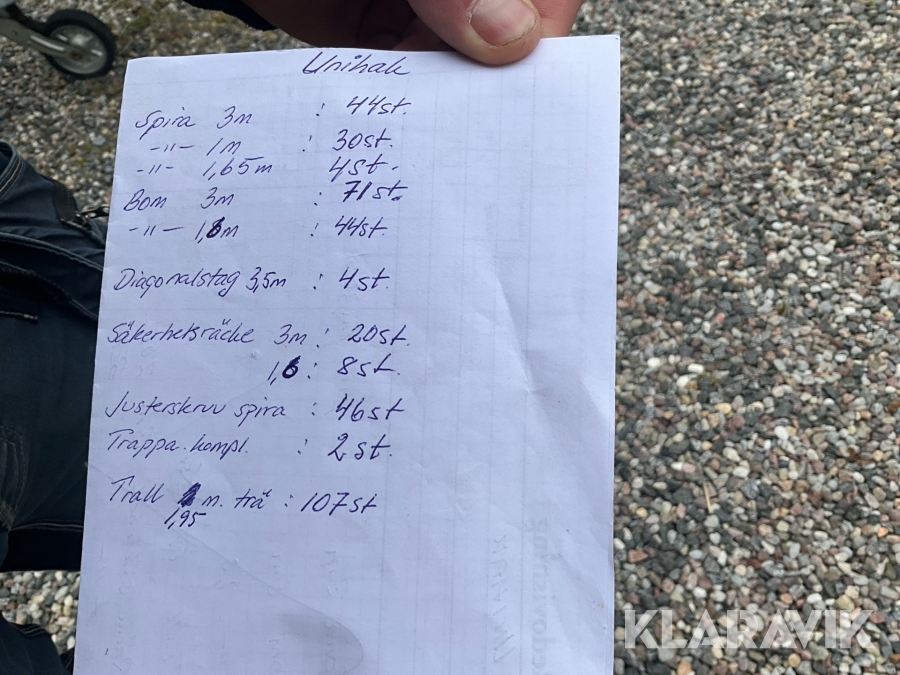 Unihak
Spira 3m : 44st.
-"- 1m : 30st.
-"- 1,65m 4st.
Bom 3m : 71st.
-"- 1,6m : 44st.
Diagonalstag 3,5m : 4st.
Säkerhetsräcke 3m : 20st.
1,6 : 8st.
Justerskruv spira : 46st
Trappa kompl. : 2st.
Trall m. trä : 107st
1,95
KLARAVIK